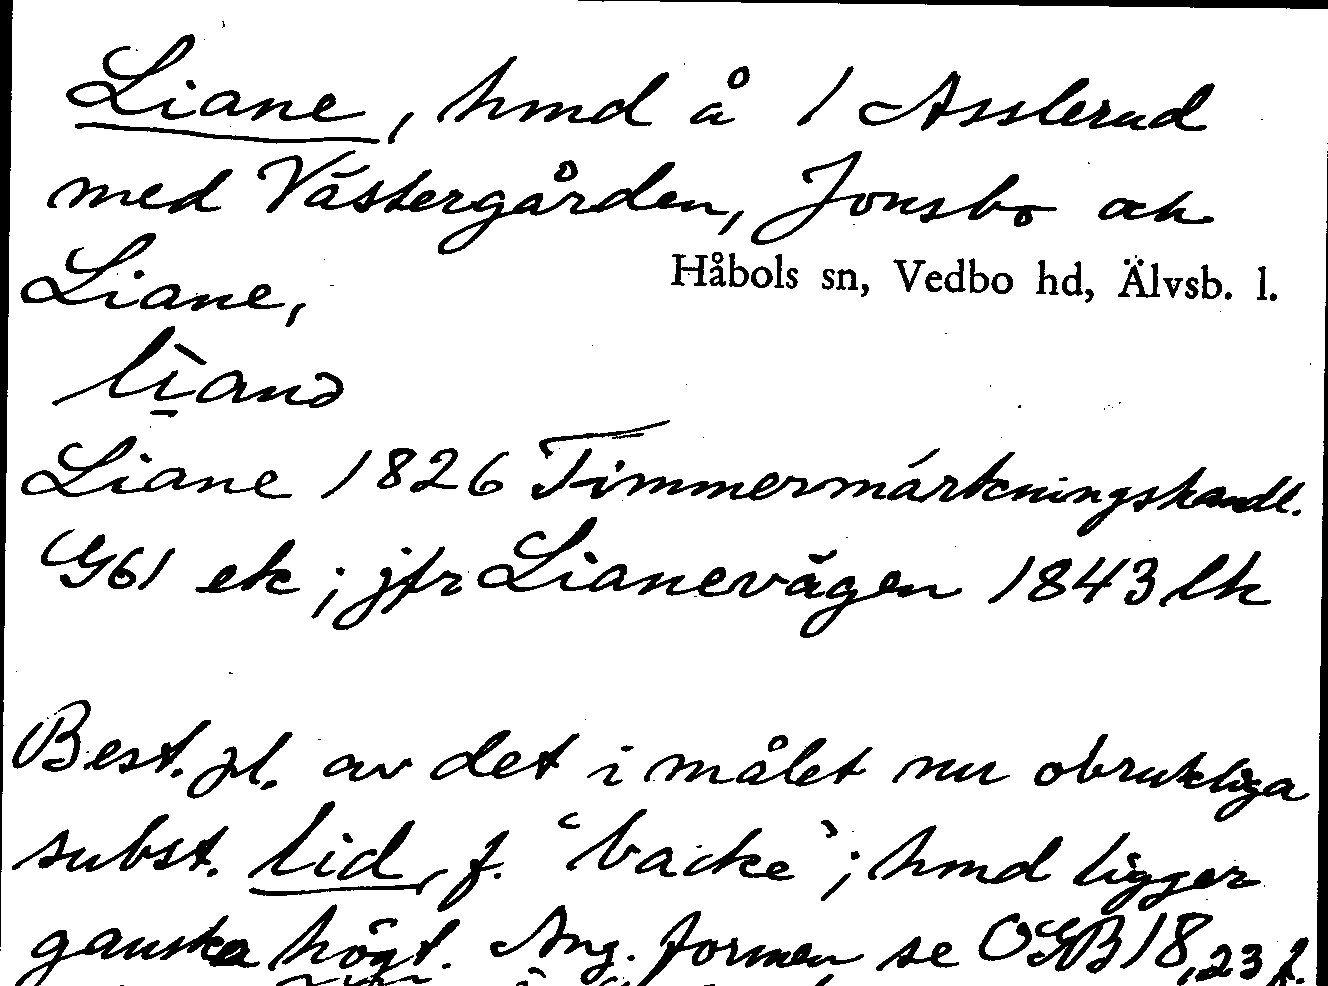 Liane, hmd å 1 Asslerud
med Västergården, Jonsbo och
Liane,
Håbols sn, Vedbo hd, Älvsb. l.
lìanə
Liane 1826 Timmermärkningshandl.
G61 ek; jfr Lianevägen 1843 lk
Best. pl. av det i målet nu obrukliga
subst. lid, f. ‘backe’; hmd ligger
ganska högt. Ang. formen se OGB 18,23 f.